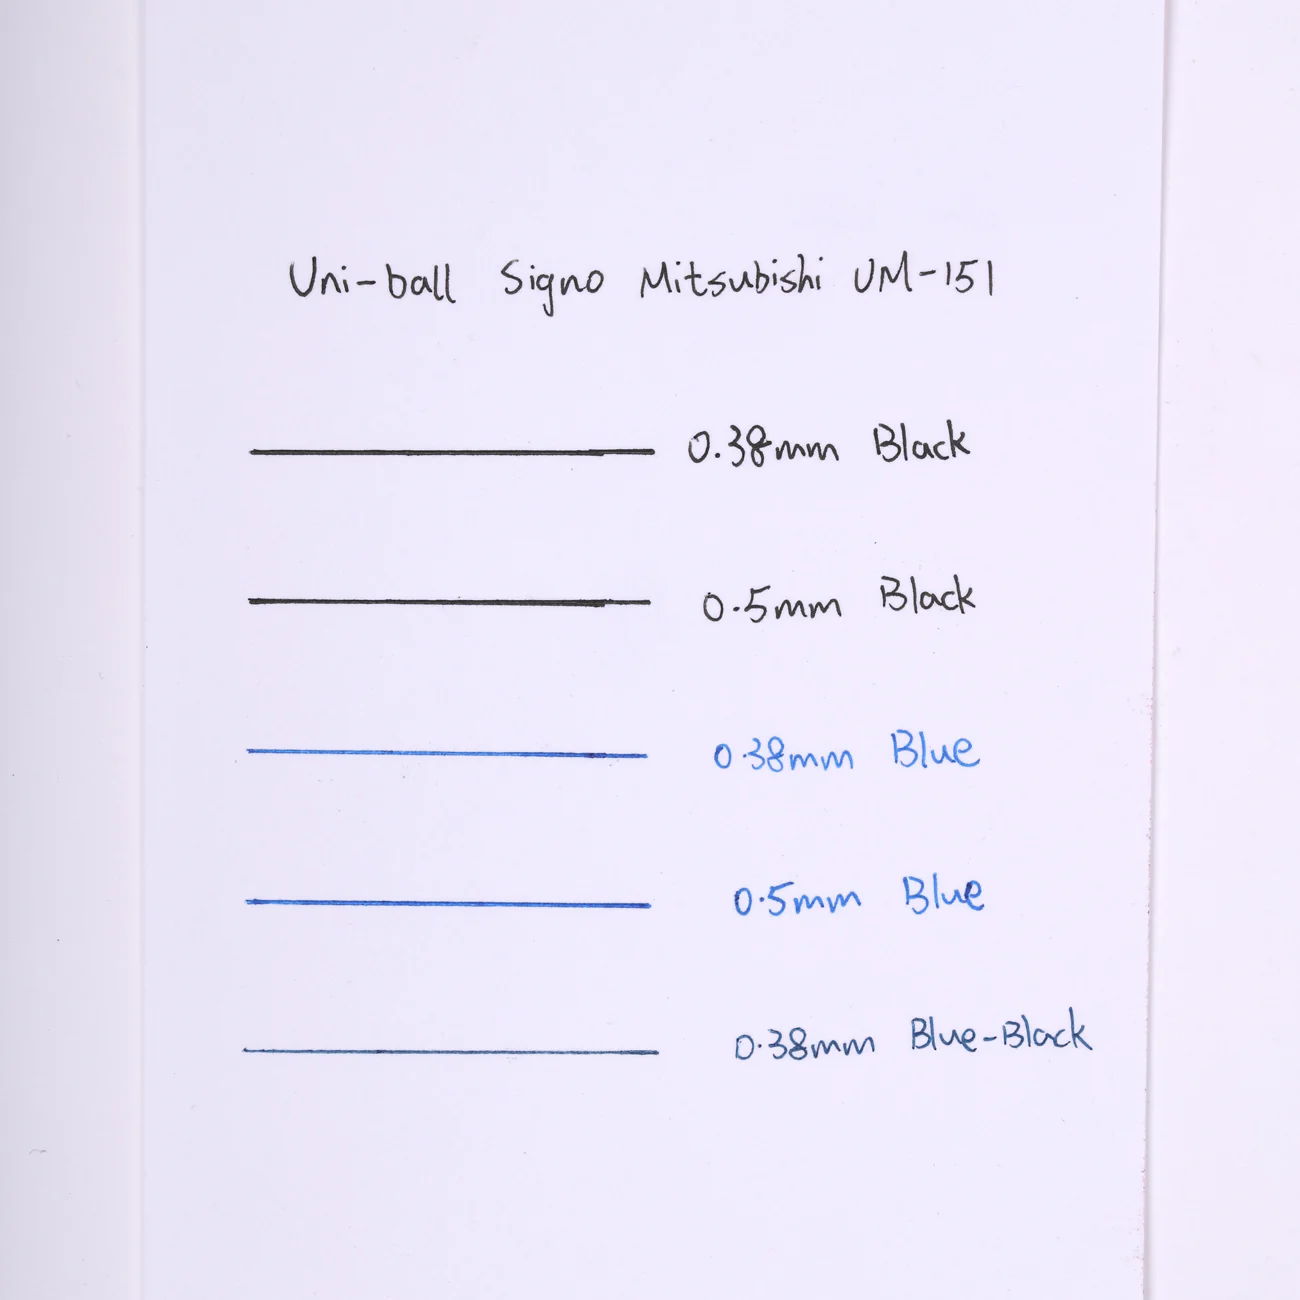 Uni-ball Signo Mitsubishi UM-151
0.38mm Black
0.5mm Black
0.38mm Blue
0.5mm Blue
0.38mm Blue-Black